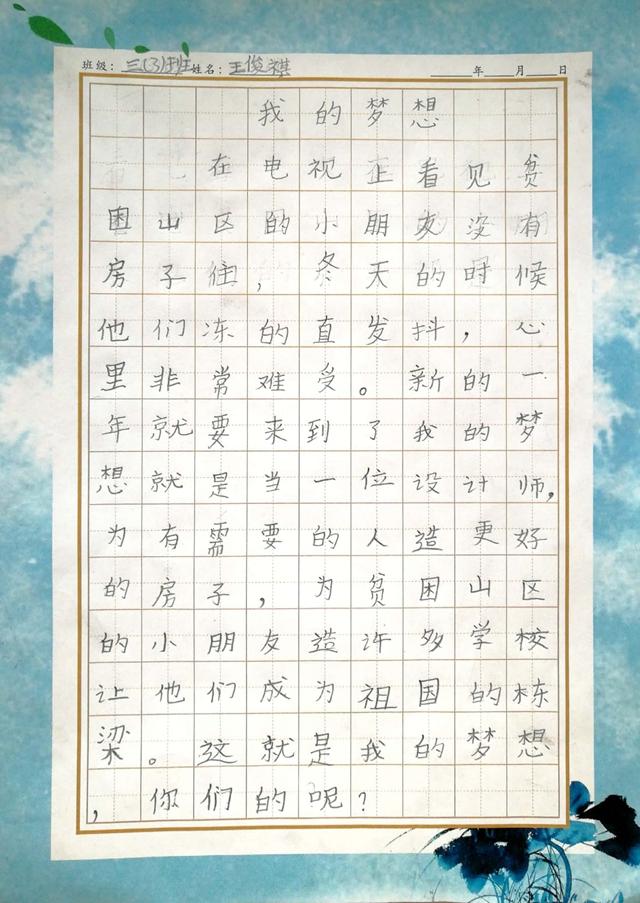 班级：三(3)班姓名：王俊祺 年 月 日
我的梦想
在电视正看见贫
困山区的小朋友没有
房子住，冬天的时候
他们冻的直发抖，心
里非常难受。新的一
年就要来到了我的梦
想就是当一位设计师，
为有需要的人造更好
的房子，为贫困山区
的小朋友造许多学校
让他们成为祖国的栋
梁。这就是我的梦想
，你们的呢？